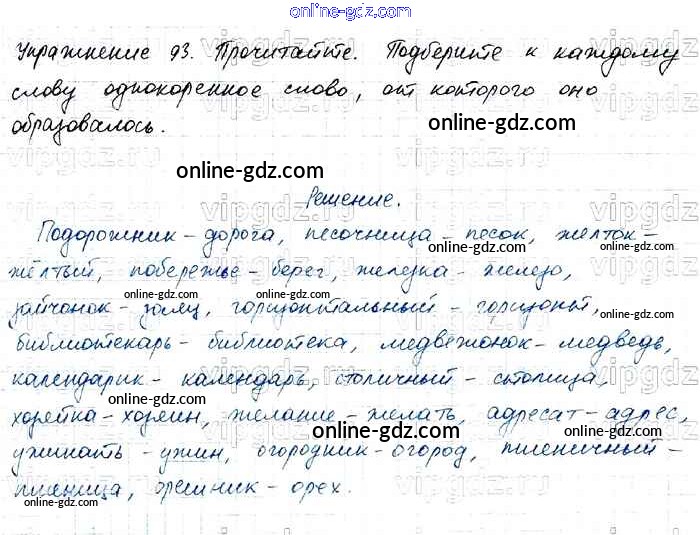 online-gdz.com
Упражнение 93. Прочитайте. Подберите к каждому
слову однокоренное слово, от которого оно
образовалось.
online-gdz.com
online-gdz.com
Решение.
Подорожник – дорога, песочница – песок, желток –
жёлтый, побережье – берег, железка – железо,
зайчонок – заяц, горизонтальный – горизонт,
библиотекарь – библиотека, медвежонок – медведь,
календарик – календарь, столичный – столица,
хозяйка – хозяин, желание – желать, адресат – адрес,
ужинать – ужин, огородник – огород, пшеничный –
пшеница, орешник – орех.
online-gdz.com
online-gdz.com
online-gdz.com
online-gdz.com
online-gdz.com
online-gdz.com
online-gdz.com
online-gdz.com
online-gdz.com
online-gdz.com
online-gdz.com
vipgdz.ru